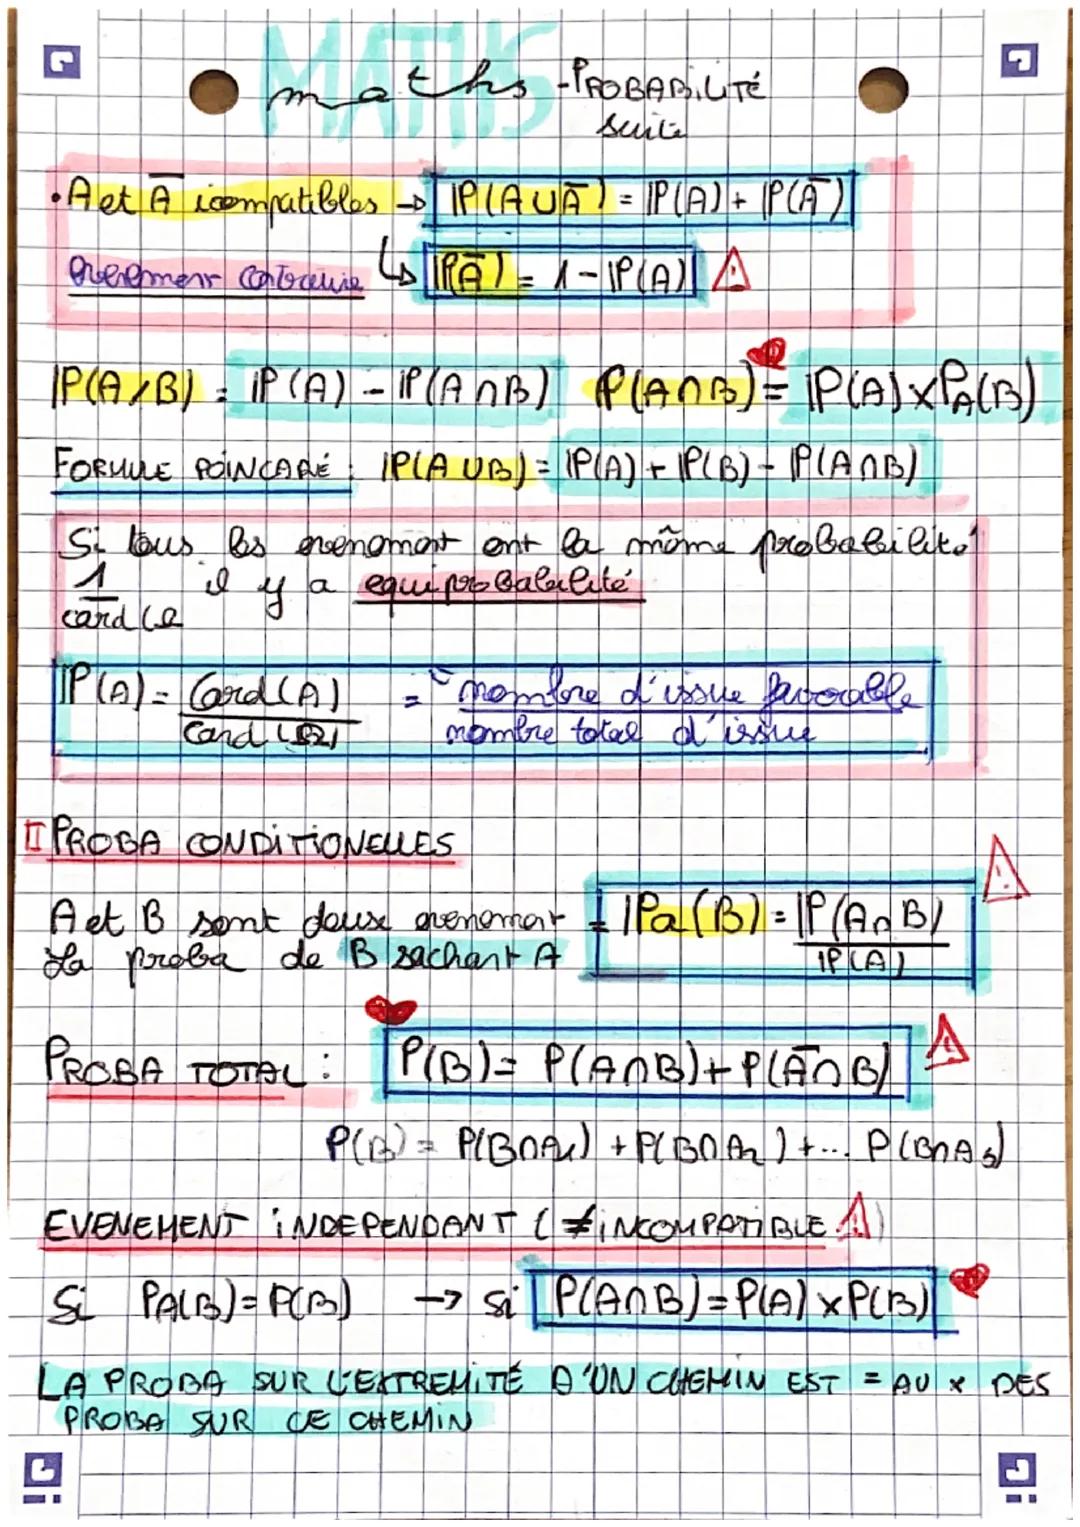 MATHS
maths - PROBABILITÉ
suite
• A et Ā icompatibles → IP(A∪Ā) = IP(A) + IP(Ā)
evenement contraire ↳ IP(Ā) = 1 - IP(A)
IP(A/B) = IP(A) - IP(A∩B) P(A∩B) = IP(A) x P_A(B)
FORMULE POINCARÉ : IP(A∪B) = IP(A) + IP(B) - IP(A∩B)
Si tous les evenement ont la même probabilité
1/card(Ω il y a equiprobabilité
IP(A) = Card(A)/Card(Ω) = nombre d'issue favorable/nombre total d'issue
II PROBA CONDITIONELLES
A et B sont deux evenement
La proba de B sachant A = IPa(B) = IP(A∩B)/IP(A)
PROBA TOTAL : P(B) = P(A∩B) + P(Ā∩B)
P(B) = P(B∩A1) + P(B∩A2) + ... P(B∩A3)
EVENEMENT INDEPENDANT (≠ INCOMPATIBLE )
Si PA(B) = P(B) → si P(A∩B) = P(A) x P(B)
LA PROBA SUR L'EXTREMITÉ D'UN CHEMIN EST = AU x DES
PROBA SUR CE CHEMIN